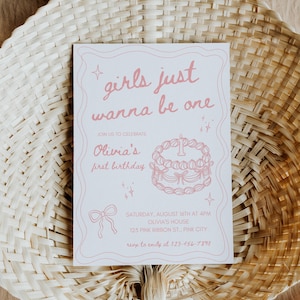 girls just
wanna be one
JOIN US TO CELEBRATE
Olivia's
first birthday
1
SATURDAY, AUGUST 16TH AT 4PM
OLIVIA'S HOUSE
123 PINK RIBBON ST., PINK CITY
rsvp to emily at 123-456-7891